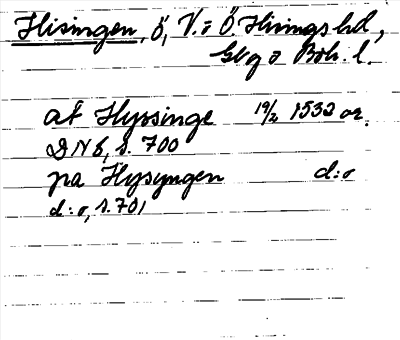 Hisingen, ö, V. o Ö. Hisings hd,
Gbg o Boh. l.
at Hyssinge 19/2 1532 or.
DN 6, s. 700
pa Hysyngen d:o
d:o, s. 701